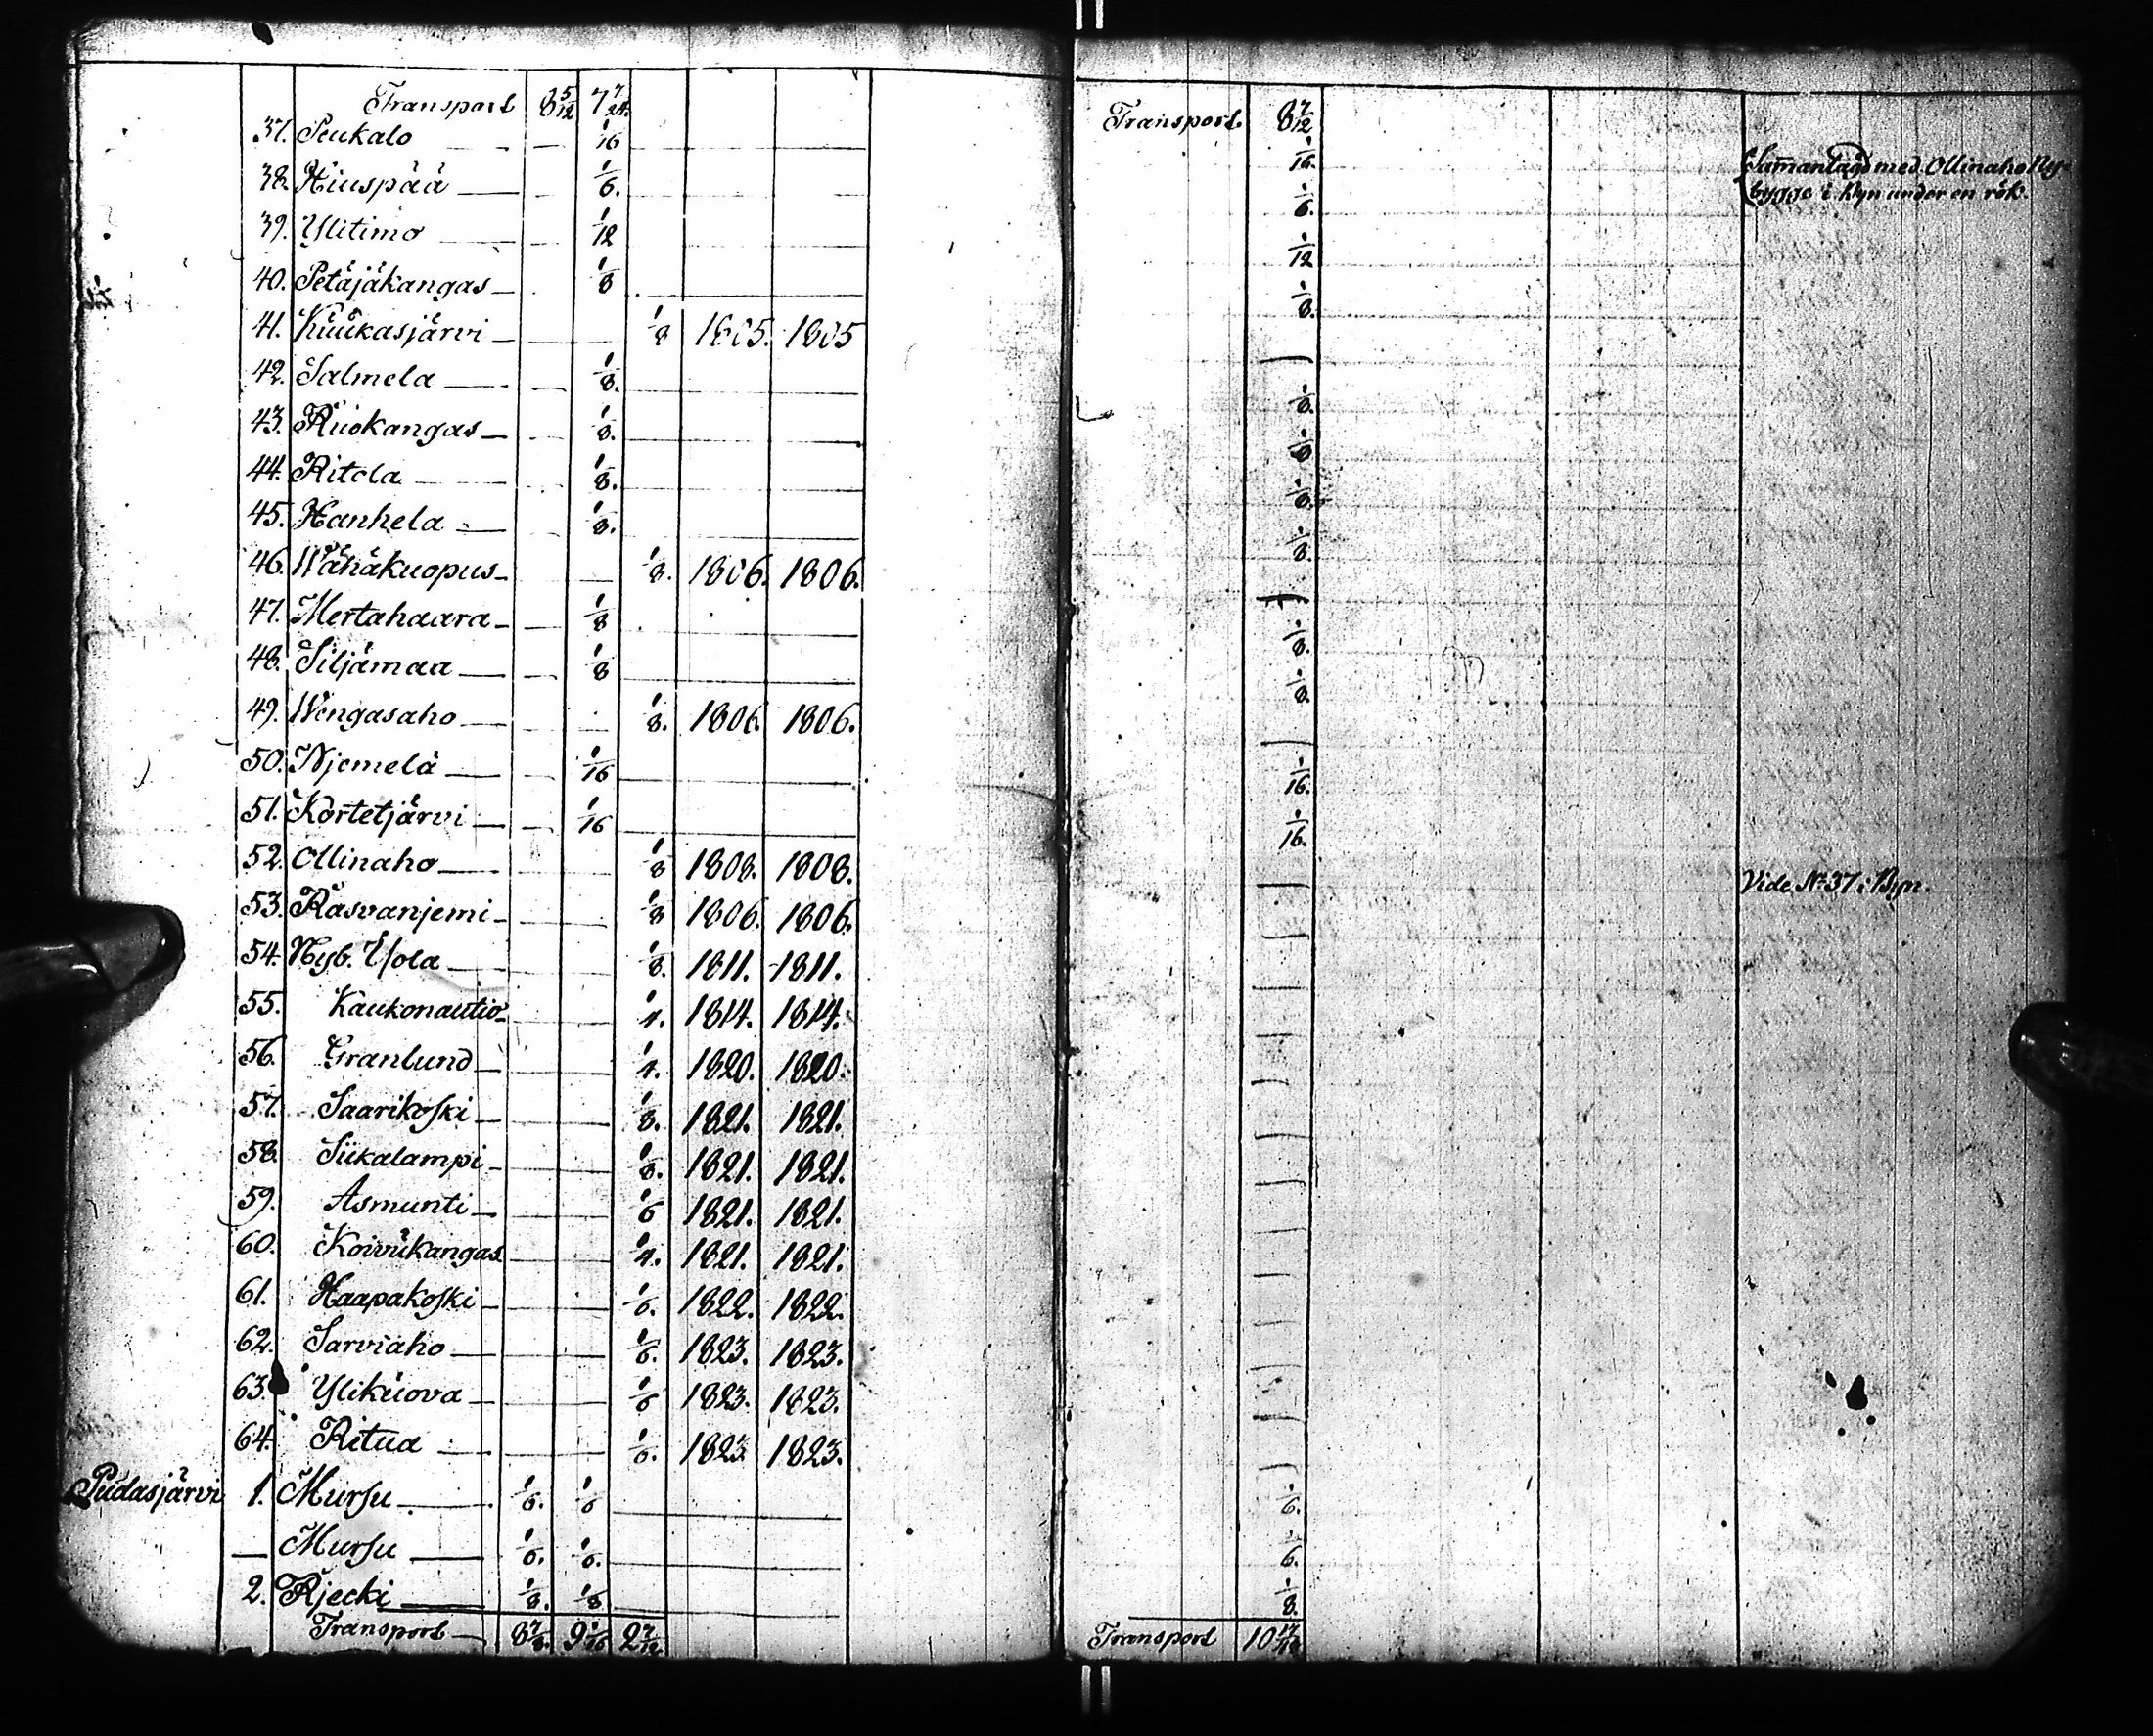 Transport 8 5/12 7 7/24.
37. Peukalo — — 1/16
38. Hiuspää — — 1/6.
39. Ylitimo — — 1/12
40. Petäjäkangas — 1/8
41. Kuukasjärvi — — 1/8 1805. 1805
42. Salmela — — 1/8.
43. Ruokangas — — 1/8.
44. Ritola — — 1/8.
45. Hanhela — — 1/8.
46. Wähäkuopus — — 1/8. 1806. 1806.
47. Mertahaara — — 1/8
48. Siljämaa — — 1/8
49. Wengasaho — — 1/8. 1806. 1806.
50. Njemelä — — 1/16
51. Kortetjärvi — — 1/16
52. Ollinaho — — 1/8 1808. 1808.
53. Rasvanjemi — — 1/8 1806. 1806.
54. Nyb. Ysola — — 1/8. 1811. 1811.
55. Kaukonautio — — 1/4. 1814. 1814.
56. Granlund — — 1/4. 1820. 1820.
57. Saarikoski — — 1/8. 1821. 1821.
58. Siikalampi — — 1/8. 1821. 1821.
59. Asmunti — — 1/6 1821. 1821.
60. Koivukangas — — 1/4. 1821. 1821.
61. Haapakoski — — 1/6. 1822. 1822.
62. Sarviaho — — 1/6. 1823. 1823.
63. Ylikuova — — 1/6 1823. 1823.
64. Ritua — — 1/6. 1823 1823.
Pudasjärvi 1. Mursu — 1/6. 1/6
— Mursu — 1/6. 1/6.
2. Rjecki — 1/8. 1/8
Transport — 8 7/8. 9 1/16 2 7/12
Transport. 8 7/12
1/16. Samantagd med Ollinaho Ny-
bygge i Byn under en rök.
1/6.
1/12
1/8.
—
1/8.
1/8
1/8.
1/8.
—
1/8.
1/8.
—
1/16.
1/16.
— Vide No 37 i Byn.
—
—
—
—
—
—
—
—
—
—
—
—
1/6.
1/6.
1/8.
Transport 10